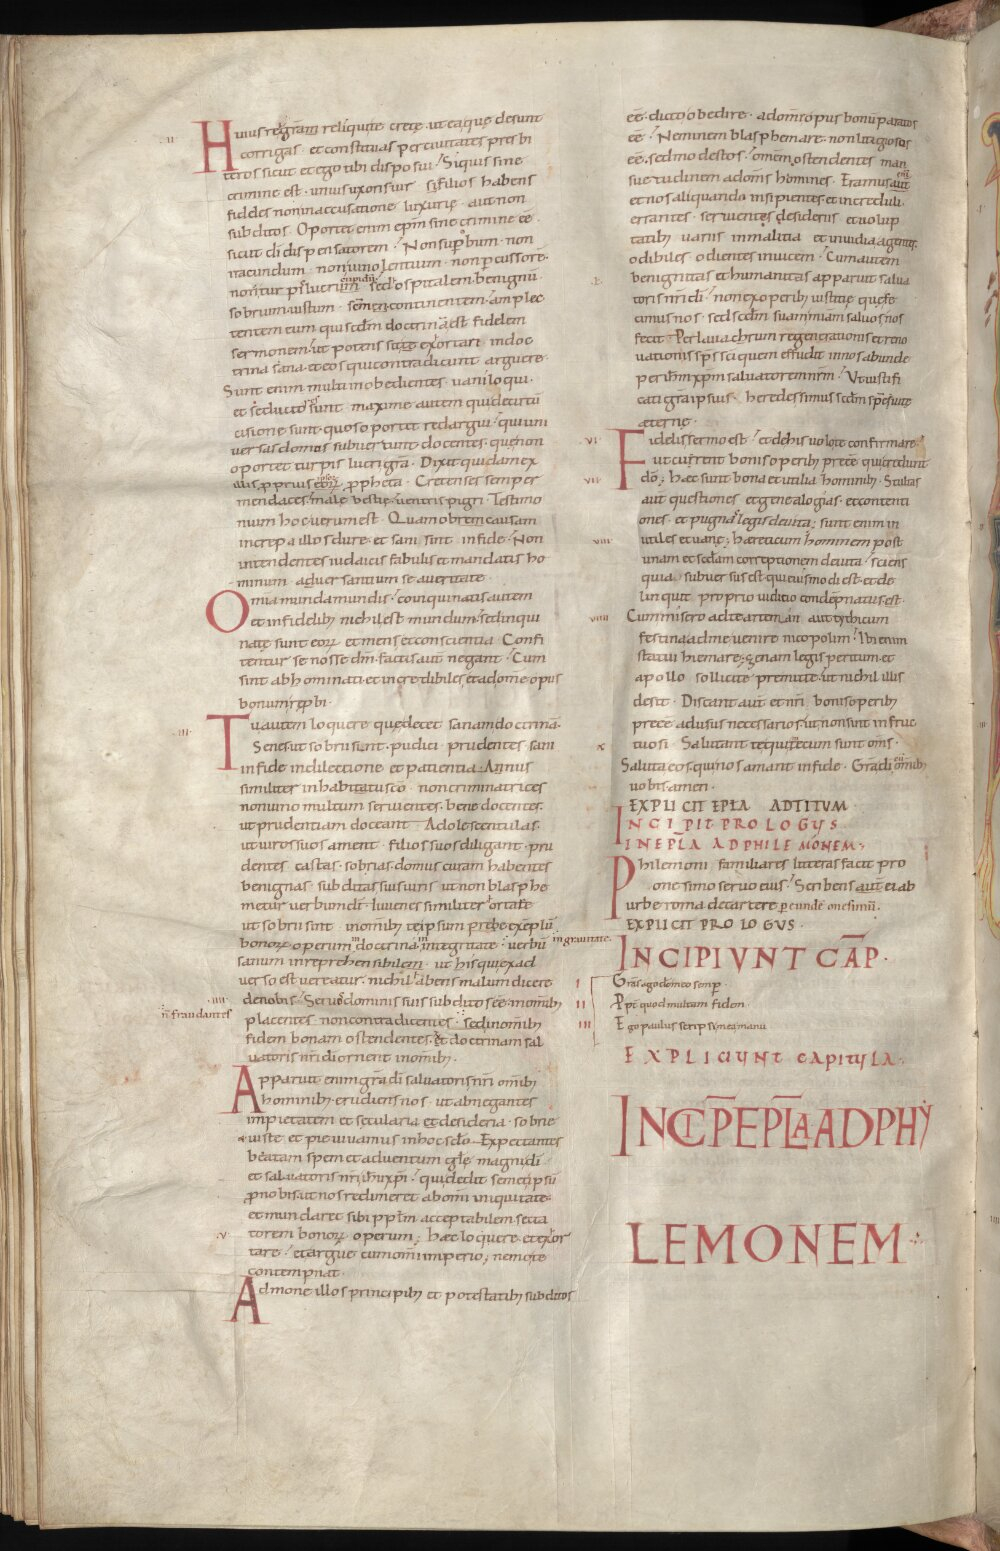 II
Huius rei gr̄am reliqui te crete. ut ea quę desunt
corrigas et constituas per ciuitates presbi
teros sicut et ego tibi disposui. Siquis sine
crimine est. unius uxoris uir. filios habens
fideles non in accusatione luxurię. aut non
subditos. Oportet enim ep̄m sine crimine ee̅.
sicut dī dispensatorem. Non sup̱bum. non
iracundum. non uinolentum. non p̱cussorem.
non tur pis lucri cupidū sed ospitalem. benignū.
sobrium. iustum. sc̄m. continentem. amplec
tentem eum qui scd̄m doctrinā est fidelem
sermonem. ut potens sit et exortari in doc
trina sana. et eos qui contradicunt arguere.
Sunt enim multi inobedientes. uaniloqui.
et seductores sunt. maxime autem qui de circū
cisione sunt. quos oportet redargui. qui uni
uersas domos subuertunt. docentes. quę non
oportet turpis lucri gr̄a. Dixit quidam ex
illis proprius eorꝝ ipsorꝝ ppheta. Cretenses semper
mendaces. malę bestię. uentris pigri. Testimo
nium hoc uerum est. Quam obrem causam
increpa illos dure. et sani sint in fide. Non
intendentes iudaicis fabulis et mandatis ho
minum. aduersantium se a ueritate.
Omia munda mundis. coinquinatis autem
et infidelibꝫ nichil est mundum. sed inqui
natę sunt eorꝝ et mens et conscientia. Confi
tentur se nosse dm̄. factis aut̄ negant. Cum
sint abhominati et incredibiles et ad ome opus
bonum rep̱bi.
III
Tu autem loquere quę decet sanam doctrinā.
Senes. ut sobrii sint. pudici. prudentes. sani
in fide in dilectione et patientia. Annus
similiter in habitu sc̄o. non criminatrices
non uino multum seruientes. bene docentes.
ut prudentiam doceant. Adolescentulas.
ut uiros suos ament. filios suos diligant. pru
dentes. castas. sobrias. domus curam habentes
benignas. subditas suis uiris. ut non blasphe
metur uerbum dī. Iuuenes similiter ortare
ut sobrii sint. in omibꝫ te ipsum prębe exēplū
bonorꝝ operum in doctrina in integritate. in grauitate. uerbū
sanum inreprehensibilem. ut his qui ex ad
uerso est uereatur. nichil abens malum dicere
IIII
de nobis. Seruos dominis suis subditos eē. in omībꝫ
placentes. non contradicentes. n̄ fraudantes sed in omībꝫ
fidem bonam ostendentes. et doctrinam sal
uatoris nr̄i dī ornent in omībꝫ.
Apparuit enim gr̄a dī saluatoris nr̄i omībꝫ
hominibꝫ. erudiens nos. ut abnegantes
impietatem et secularia et desideria. sobrie
et iuste et pie uiuamus in hoc sclo. Expectantes
beatam spem et aduentum glę magni dī
et saluatoris nr̄i ih̄u xp̄i. qui dedit semetipsū
p̱ nobis. ut nos redimeret ab omi iniquitate.
et mundaret sibi pp̱lm acceptabilem. secta
V
torem bonorꝝ operum; hęc loquere. et exhor
tare. et argue cum omi imperio; nemo te
contempnat.
Admone illos principibꝫ et potestatibꝫ subditos
eē. dicto obedire. ad om̄ opus bonū paratos
eē. Neminem blasphemare. non litigiosos
eē. sed modestos. omem ostendentes man
suetudinem ad om̄s homines. Eramus aut̄ eni̅
et nos aliquando insipientes et increduli.
errantes. seruientes desideriis et uolup
tatibꝫ uariis in malitia et inuidia agentes.
odibiles. odientes inuicem. Cum autem
benignitas et humanitas apparuit salua
toris nr̄i dī. non ex operibꝫ iustitię quę fe
cimus nos. sed scd̄m suam m̄iam saluos nos
fecit. Per lauachrum regenerationis et reno
uationis sp̄s sc̄i quem effudit in nos abunde
per ih̄m xp̄m saluatorem nr̄m. Ut iustifi
cati gr̄a ipsius. heredes simus scd̄m spē uitę
aeternę.
VI
Fidelis sermo est. et de his uolo te confirmare.
ut curent bonis operibꝫ preeē qui credunt
VII
dō. hęc sunt bona et utilia hominibꝫ. Stultas
aut̄ questiones et genealogias. et contenti
ones. et pugnas legis deuita; sunt enim in
VIII
utiles et uanę; hereticum hominem post
unam et scd̄am correptionem deuita. sciens
quia subuersus est qui eiusmodi est. et de
linquit. proprio iuditio condēpnatus est.
VIIII
Cum misero ad te arteman aut tychicum
festina ad me uenire nicopolim. Ibi enim
statui hiemare; zenam legis peritum. et
apollo sollicite premitte. ut nichil illis
desit. Discant aut̄ et nr̄i. bonis operibꝫ
preeē ad usus necessarios. ut non sint infruc
X
tuosi. Salutant te qui mecum sunt om̄s.
Saluta eos. qui nos amant in fide. Gr̄a dī cū omibꝫ
uobis. amen.
EXPLICIT EPLA AD TITUM.
INCIPIT PROLOGUS
IN EPLA AD PHILEMONEM.
Philemoni familiares litteras facit pro
onesimo seruo eius. Scribens aut̄ ei ab
urbe roma de carcere p̱ eundē onesimū.
EXPLICIT PROLOGUS.
INCIPIUNT CAP̄.
I Gras ago deo meo semp̱.
II Pp̱t quod multam fidem.
III Ego paulus scripsi mea manu
EXPLICIUNT CAPITULA.
INCIP̄ EPL̄A AD PHY
LEMONEM